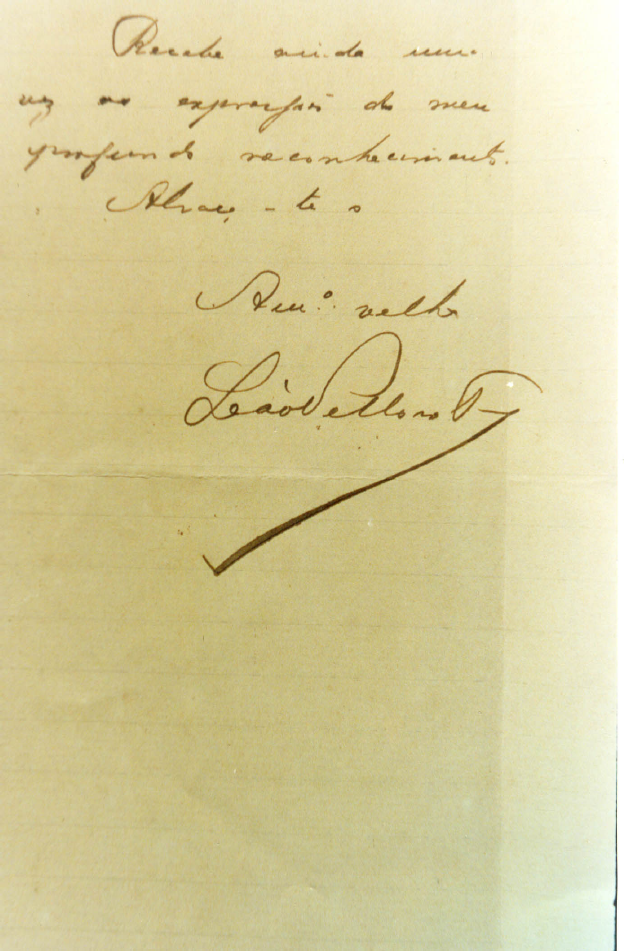 Recebe ainda uma
vez as expressões do meu
profundo reconhecimento.
Abraça-te o
Am.º velho
Leão Velloso F